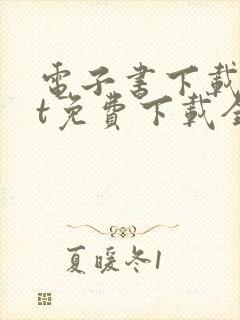 電子書下載
t免費下載全
夏暖冬1